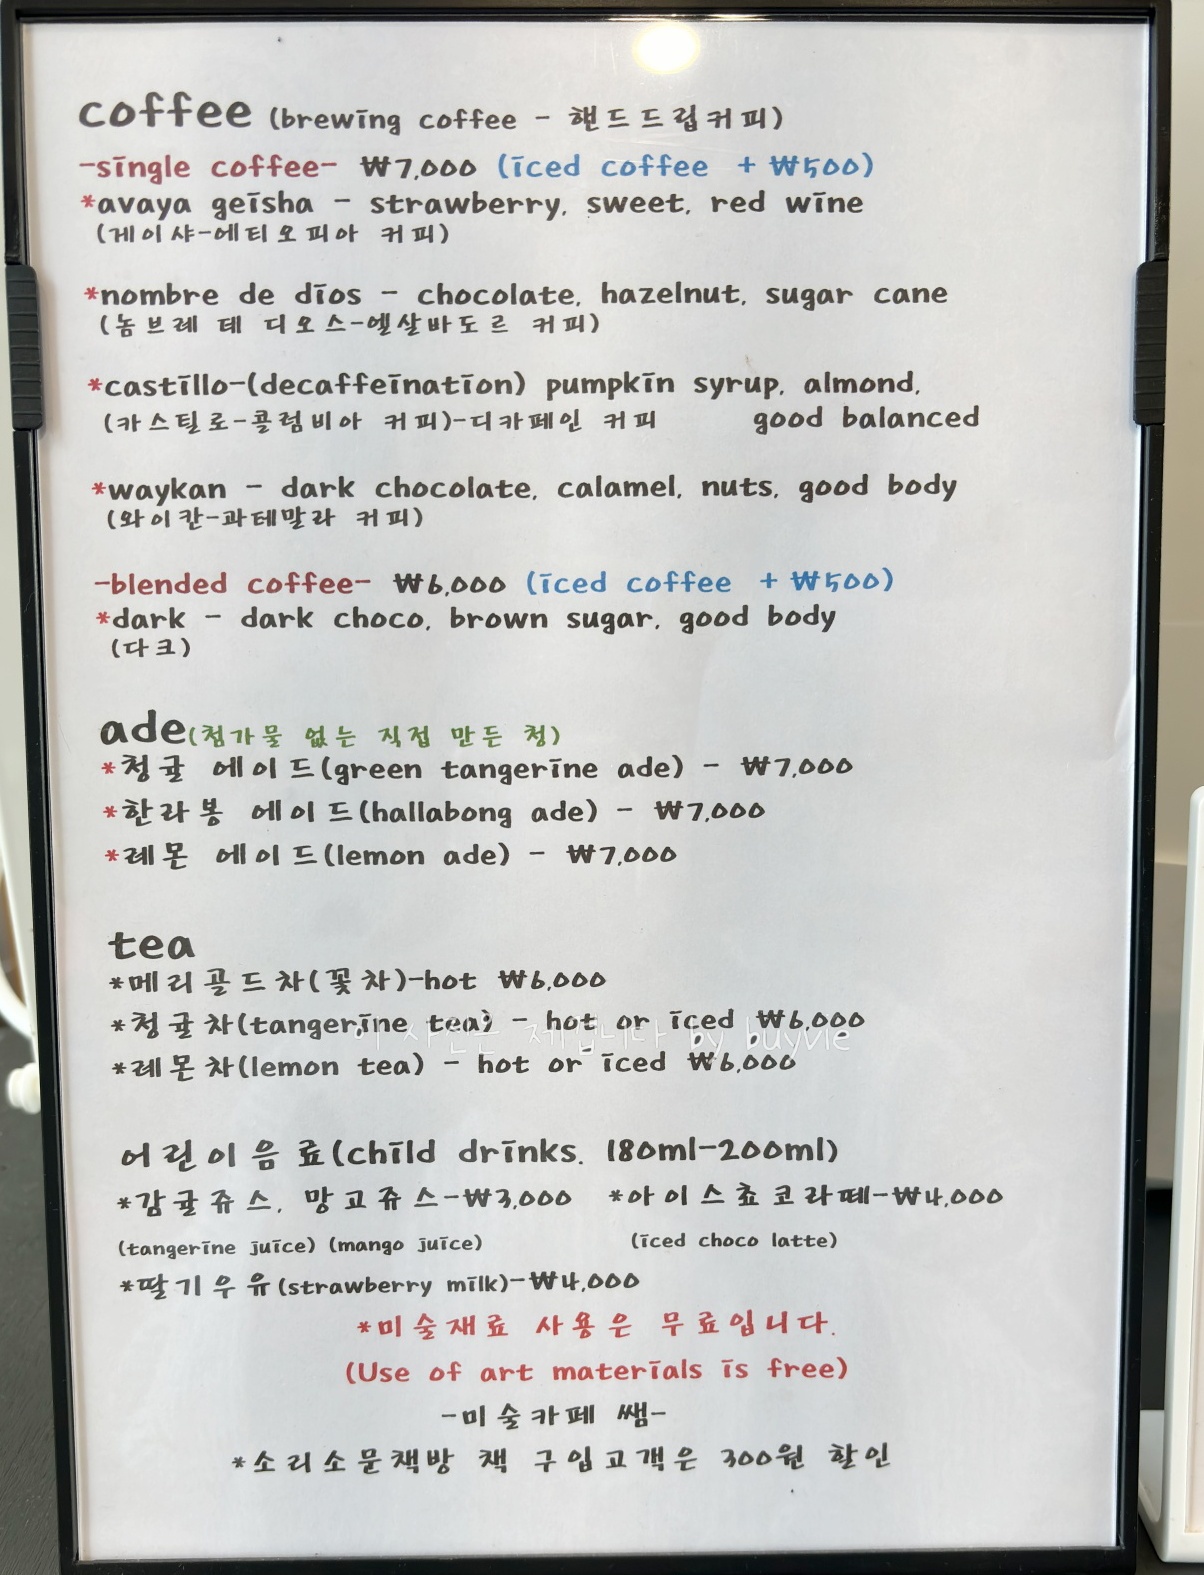 coffee (brewing coffee - 핸드드립커피)
-single coffee- ₩7,000 (iced coffee +₩500)
*avaya geisha - strawberry, sweet, red wine
(게이샤-에티오피아 커피)
*nombre de dios - chocolate, hazelnut, sugar cane
(놈브레 데 디오스-엘살바도르 커피)
*castillo-(decaffeination) pumpkin syrup, almond,
(카스틸로-콜럼비아 커피)-디카페인 커피 good balanced
*waykan - dark chocolate, calamel, nuts, good body
(와이칸-과테말라 커피)
-blended coffee- ₩6,000 (iced coffee +₩500)
*dark - dark choco, brown sugar, good body
(다크)
ade(첨가물 없는 직접 만든 청)
*청귤 에이드(green tangerine ade) - ₩7,000
*한라봉 에이드(hallabong ade) - ₩7,000
*레몬 에이드(lemon ade) - ₩7,000
tea
*메리골드차(꽃차)-hot ₩6,000
*청귤차(tangerine tea) - hot or iced ₩6,000
이 사진은 제껍니다 by buyvie
*레몬차(lemon tea) - hot or iced ₩6,000
어린이음료(child drinks. 180ml-200ml)
*감귤쥬스, 망고쥬스-₩3,000 *아이스쵸코라떼-₩4,000
(tangerine juice) (mango juice) (iced choco latte)
*딸기우유(strawberry milk)-₩4,000
*미술재료 사용은 무료입니다.
(Use of art materials is free)
-미술카페 쌤-
*소리소문책방 책 구입고객은 300원 할인